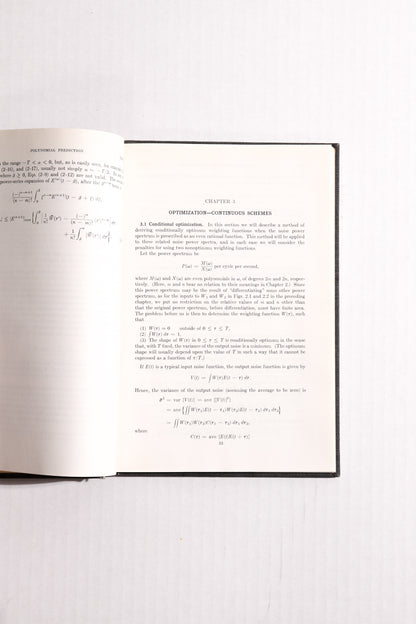 POLYNOMIAL PREDICTION
the range −T < α < 0, but, as is easily seen,
(2-16), and (2-17), usually not simply α = −T/2.
where ∂ ≥ 0, Eqs. (2-9) and (2-12) are not valid.
power-series expansion of E⁽ⁿ⁾(t − ∂), after the
CHAPTER 3
OPTIMIZATION—CONTINUOUS SCHEMES
3.1 Conditional optimization. In this section we will describe a method of
deriving conditionally optimum weighting functions when the noise power
spectrum is prescribed as an even rational function. This method will be applied
to three related noise power spectra, and in each case we will consider the
penalties for using two nonoptimum weighting functions.
Let the power spectrum be
P(ω) = M(ω)/N(ω) per cycle per second,
where M(ω) and N(ω) are even polynomials in ω, of degrees 2m and 2n, respec-
tively. (Here, m and n bear no relation to their meanings in Chapter 2.) Since
this power spectrum may be the result of "differentiating" some other power
spectrum, as for the inputs to W₁ and W₂ in Figs. 2.1 and 2.2 in the preceding
chapter, we put no restriction on the relative values of m and n other than
that the original power spectrum, before differentiation, must have finite area.
The problem before us is then to determine the weighting function W(τ), such
that
(1) W(τ) = 0 outside of 0 ≤ τ ≤ T,
(2) ∫W(τ) dτ = 1,
(3) The shape of W(τ) in 0 ≤ τ ≤ T is conditionally optimum in the sense
that, with T fixed, the variance of the output noise is a minimum. (The optimum
shape will usually depend upon the value of T in such a way that it cannot be
expressed as a function of τ/T.)
If E(t) is a typical input noise function, the output noise function is given by
V(t) = ∫W(τ)E(t − τ) dτ.
Hence, the variance of the output noise (assuming the average to be zero) is
σ² = var [V(t)] = ave {[V(t)]²}
= ave {∫∫W(τ₁)E(t − τ₁)W(τ₂)E(t − τ₂) dτ₁ dτ₂}
= ∫∫W(τ₁)W(τ₂)C(τ₁ − τ₂) dτ₁ dτ₂,
where
C(τ) = ave [E(t)E(t + τ)]